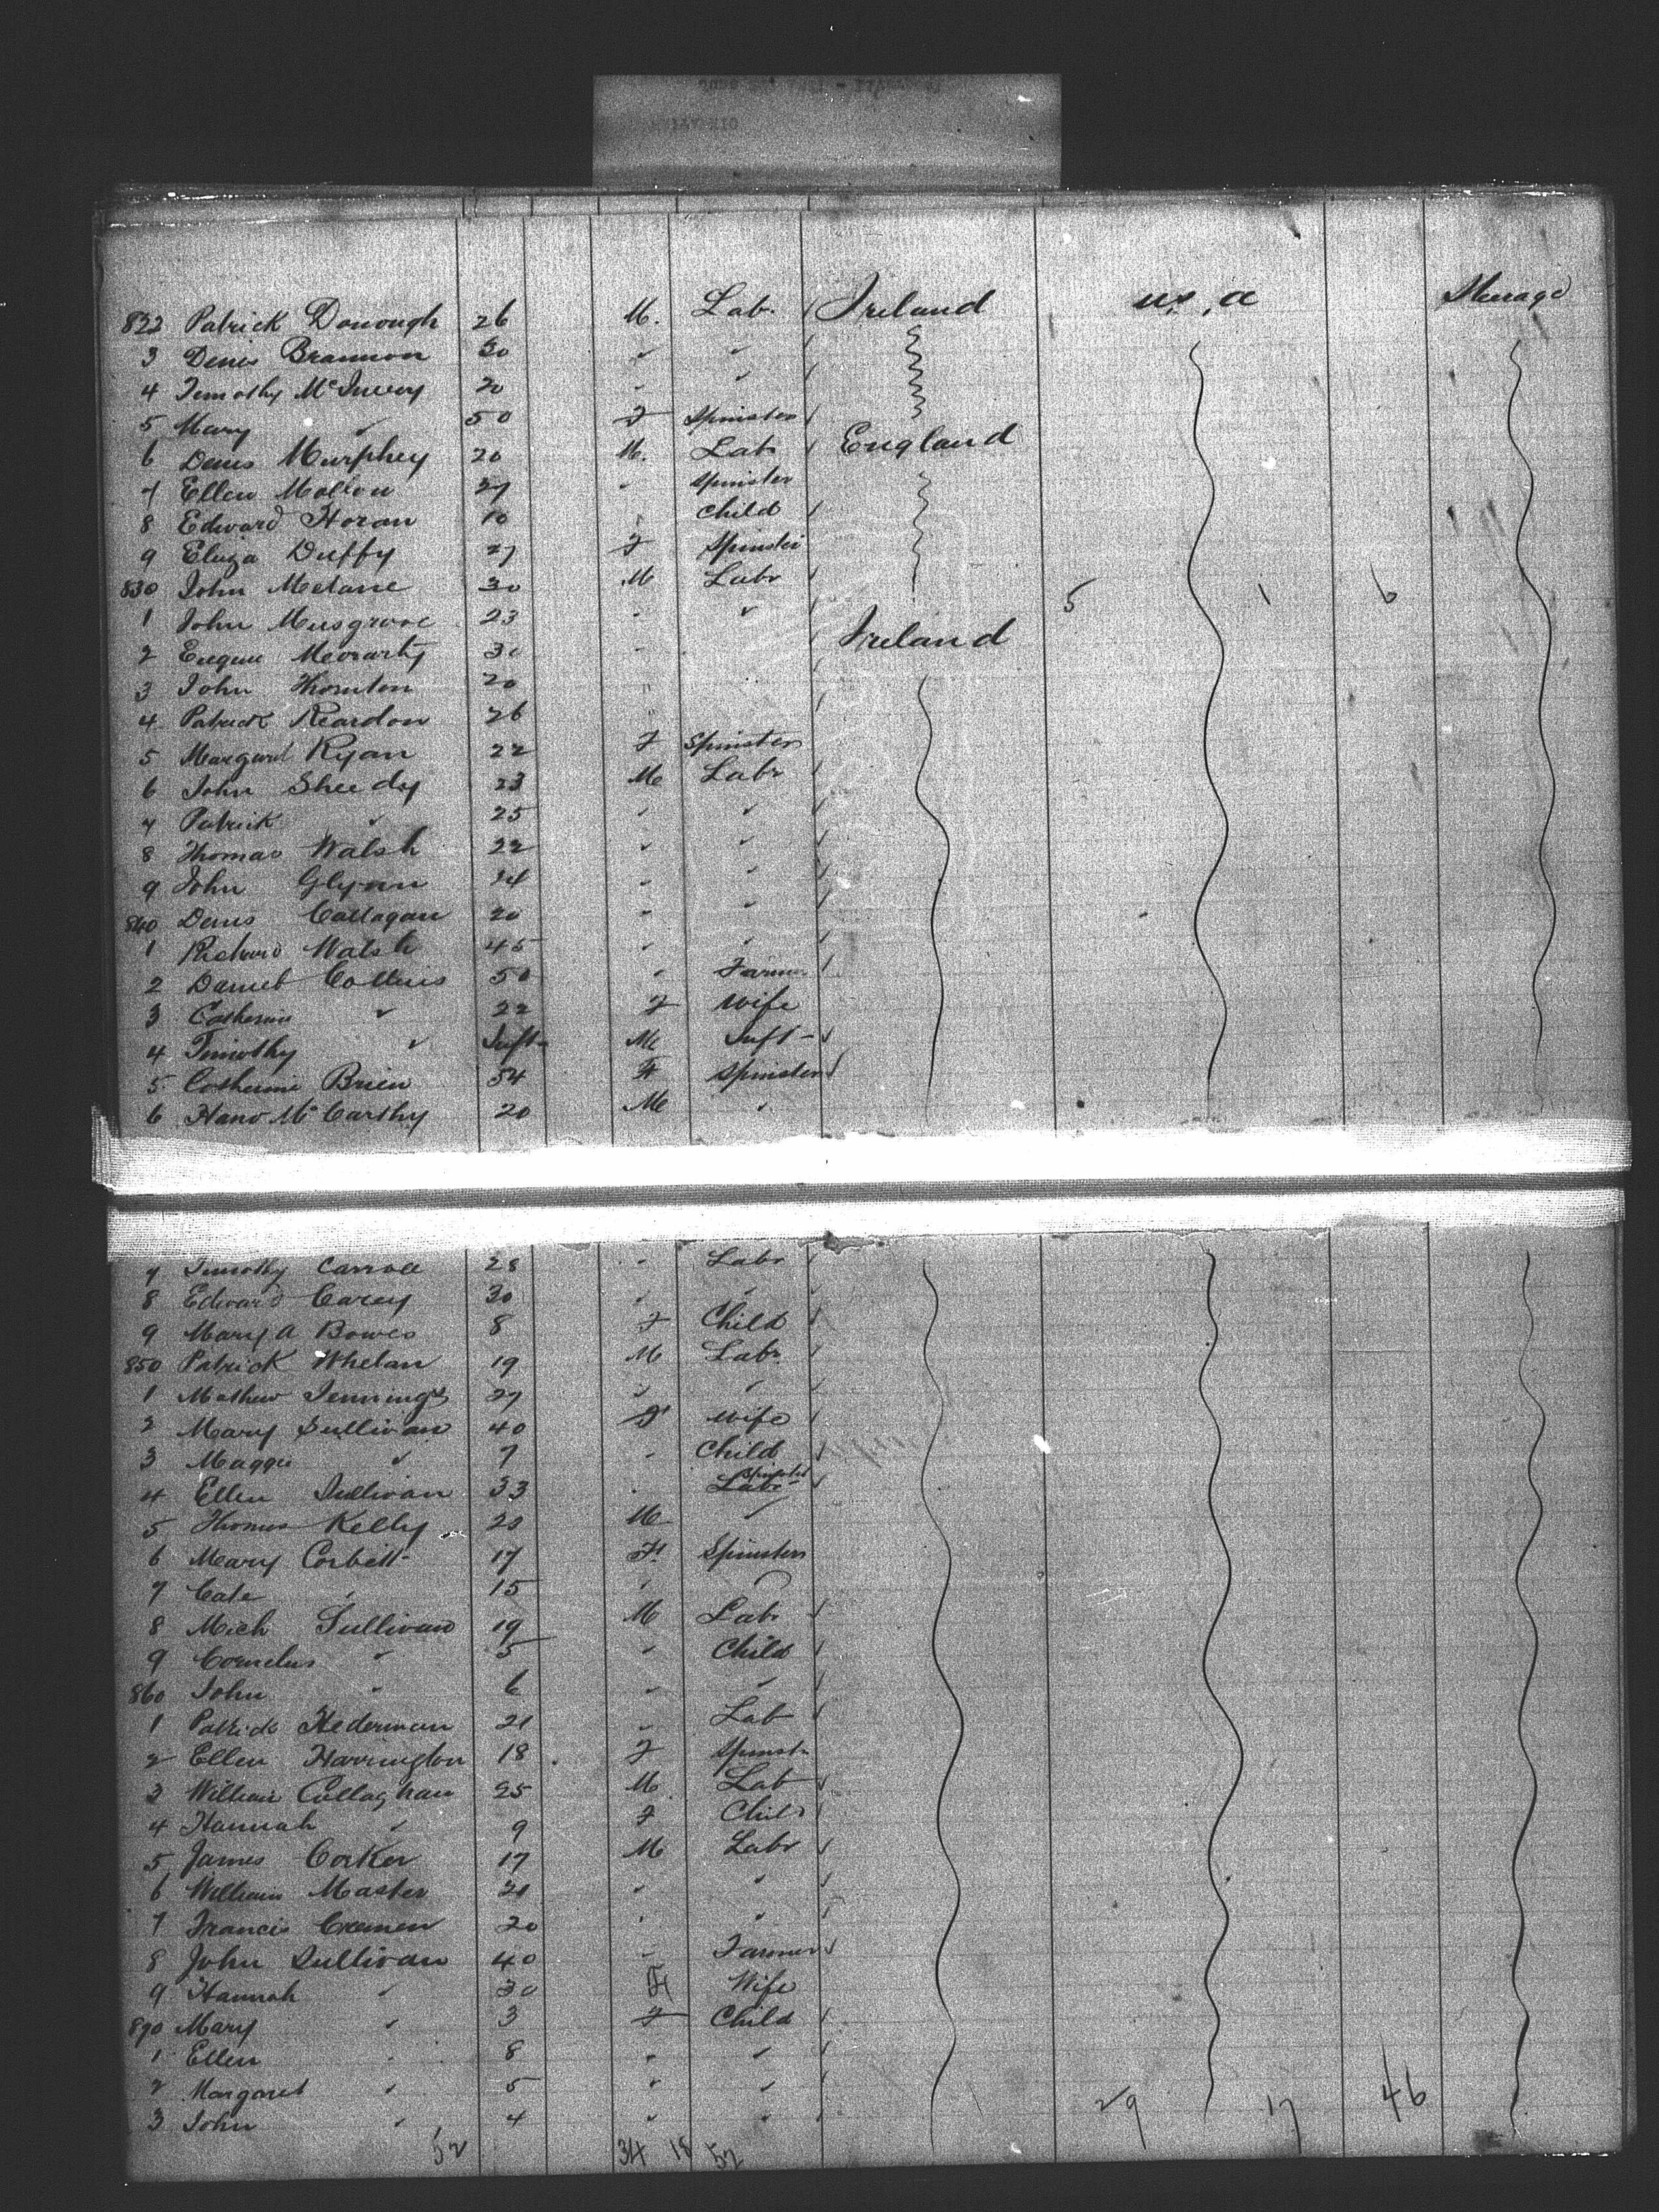 822 Patrick Donough 26 M. Lab. Ireland U.S.A Steerage
3 Denis Brannon 30 " "
4 Timothy McInerny 20 " "
5 Mary " 50 F Spinster
6 Denis Murphey 20 M. Lab England
7 Ellen Mallon 27 " Spinster
8 Edward Horan 10 Child
9 Eliza Duffy 27 F Spinster
830 John Meclane 30 M Labr 5 1 6
1 John Musgrove 23 " "
2 Eugene Moriarty 30 " Ireland
3 John Thornton 20 "
4 Patrick Reardon 26 "
5 Margaret Ryan 22 F Spinster
6 John Sheedy 23 M Labr
7 Patrick " 25 " "
8 Thomas Walsh 22 " "
9 John Glynn 24 " "
840 Denis Callagan 20 " "
1 Richard Walsh 45 " "
2 Daniel Collins 50 " Farmer
3 Catherine " 22 F Wife
4 Timothy " Inft M Inft
5 Catherine Brien 54 F Spinster
6 Hano McCarthy 20 M "
7 Timothy Carroll 28 " Labr
8 Edward Carey 30 " "
9 Mary A Bowes 8 F Child
850 Patrick Whelan 19 M Labr
1 Mathew Jennings 27 " "
2 Mary Sullivan 40 F Wife
3 Maggie " 7 " Child
4 Ellen Sullivan 33 " Labr Spinster
5 Thomas Kelly 20 M "
6 Mary Corbett 17 F Spinster
7 Cate " 15 "
8 Mich Sullivan 19 M Labr
9 Cornelus " 5 " Child
860 John " 6 " "
1 Patrick Hederman 21 " Lab
2 Ellen Harrington 18 F Spinst
3 William Callaghan 25 M Lab
4 Hannah " 9 F Child
5 James Corker 17 M Labr
6 William Master 21 " "
7 Francis Cremen 20 " "
8 John Sullivan 40 " Farmer
9 Hannah " 30 F Wife
870 Mary " 3 F Child
1 Ellen " 8 " "
2 Margaret " 5 " "
3 John " 4 " " 29 17 46
52 34 18 52